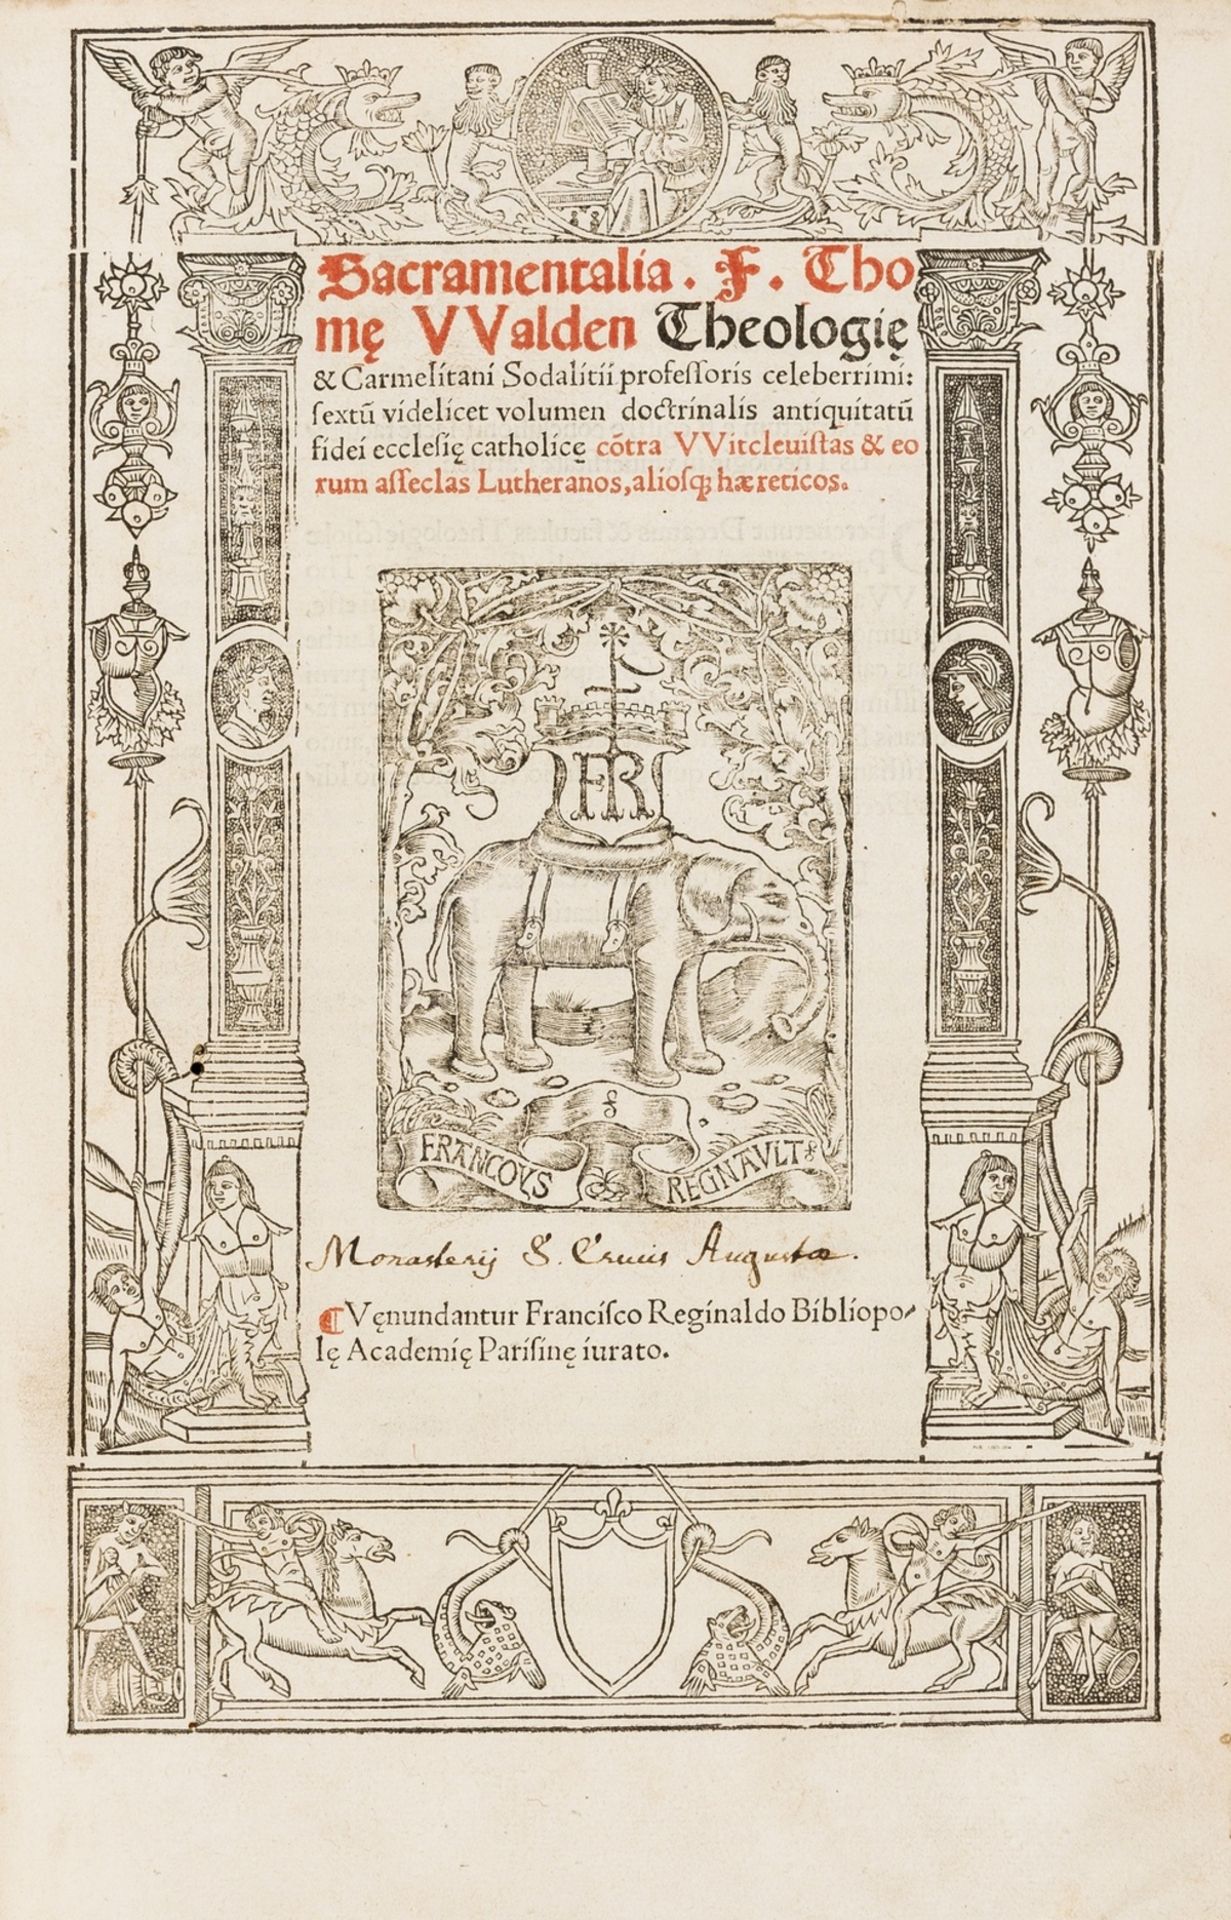 Sacramentalia. F. Tho
mę VValden Theologię
& Carmelitani Sodalitii professoris celeberrimi:
sextū videlicet volumen doctrinalis antiquitatū
fidei ecclesię catholicę cōtra VVitcleuistas & eo
rum asseclas Lutheranos, aliosq; hæreticos.
FR
FRANCOYS REGNAVLT
Monasterij S. Crucis Augustæ.
¶ Vęnundantur Francisco Reginaldo Bibliopo-
lę Academię Parisinę iurato.